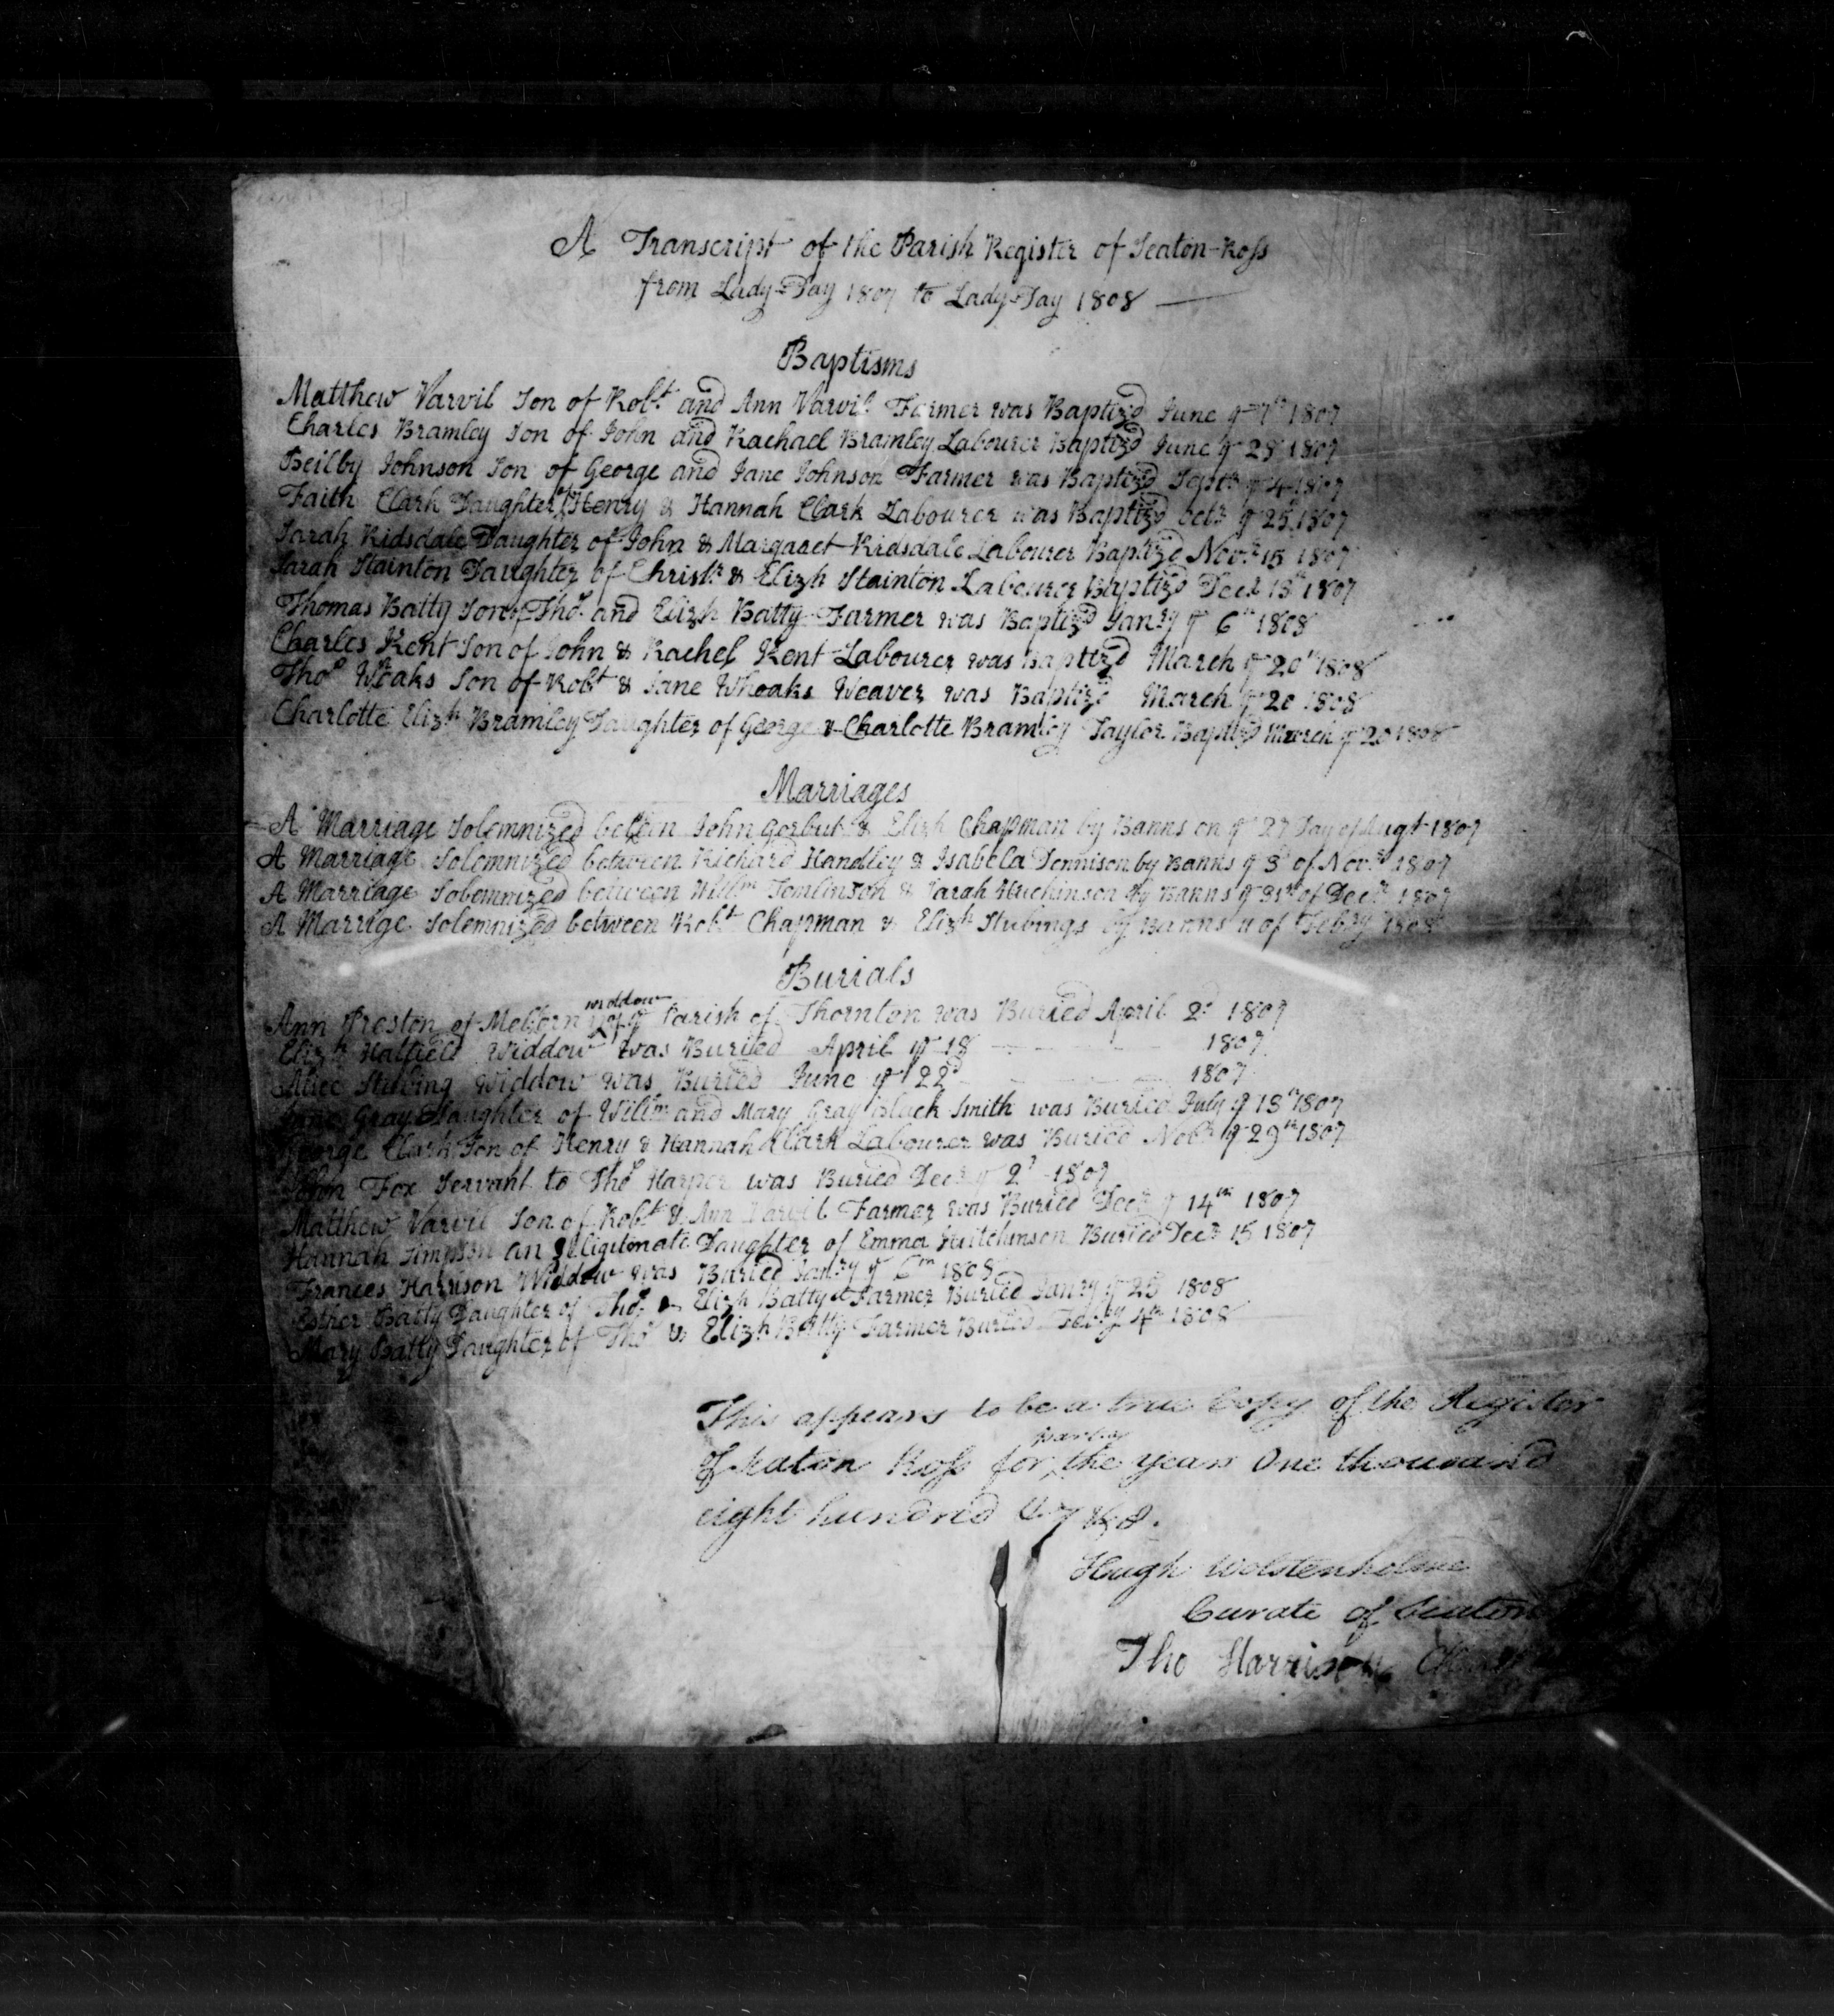 A Transcript of the Parish Register of Seaton-Ross
from Lady-Day 1807 to Lady-Day 1808
Baptisms
Matthew Varvil Son of Robt and Ann Varvil Farmer was Baptizd June ye 7th 1807
Charles Bramley Son of John and Rachael Bramley Labourer Baptizd June ye 28 1807
Beilby Johnson Son of George and Jane Johnson Farmer was Baptizd Septr ye 4 1807
Faith Clark Daughter of Henry & Hannah Clark Labourer was Baptizd Octr ye 25 1807
Sarah Ridsdale Daughter of John & Margaret Ridsdale Labourer Baptizd Novr 15 1807
Sarah Stainton Daughter of Christr & Elizh Stainton Labourer Baptizd Decr 13th 1807
Thomas Batty Son of Thos and Elizh Batty Farmer was Baptizd Janry ye 6th 1808
Charles Kent Son of John & Rachel Kent Labourer was Baptizd March ye 20th 1808
Thos Son of Robt & Jane Wheaks Weaver was Baptizd March ye 20 1808
Charlotte Elizh Bramley Daughter of George & Charlotte Bramley Taylor Baptizd March ye 20 1808
Marriages
A Marriage Solemnized between John Gorbut & Elizh Chapman by Banns on ye 27 Day of Augt 1807
A Marriage Solemnized between Richard Handley & Isabela Dennison by Banns ye 3d of Novr 1807
A Marriage Solemnized between Willm Tomlinson & Sarah Huchinson by Banns ye 31st of Decr 1807
A Marrige Solemnized between Robt Chapman & Elizh Stubings by Banns of Febry 1808
Burials
Ann Preston of Melborn widdow ye Parish of Thornton was Buried April 2d 1807
Elizh Hatfield Widdow was Buried April ye 18 1807
Alice Stubing Widdow was Buried June ye 22d 1807
Gray Daughter of Willm and Mary Gray Black Smith was Buried July ye 13th 1807
George Clark Son of Henry & Hannah Clark Labourer was Buried Nobr ye 29th 1807
John Fox Servant to Thos Harper was Buried Decr ye 2d 1807
Matthew Varvil Son of Robt & Ann Varvil Farmer was Buried Decr ye 14th 1807
Hannah Simpson an Illigitimate Daughter of Emma Hutchinson Buried Decr 15 1807
Frances Harrison Widdow was Buried Janry ye 6th 1808
Esther Batty Daughter of Thos & Elizh Batty Farmer Buried Janry ye 25 1808
Mary Batty Daughter of Thos & Elizh Batty Farmer Buried Febry 4th 1808
This appears to be a true Copy of the Register
of Seaton Ross for the years One thousand
eight hundred & 7 & 8.
Hugh Wolstenholme
Curate of Seaton
Tho Harrison